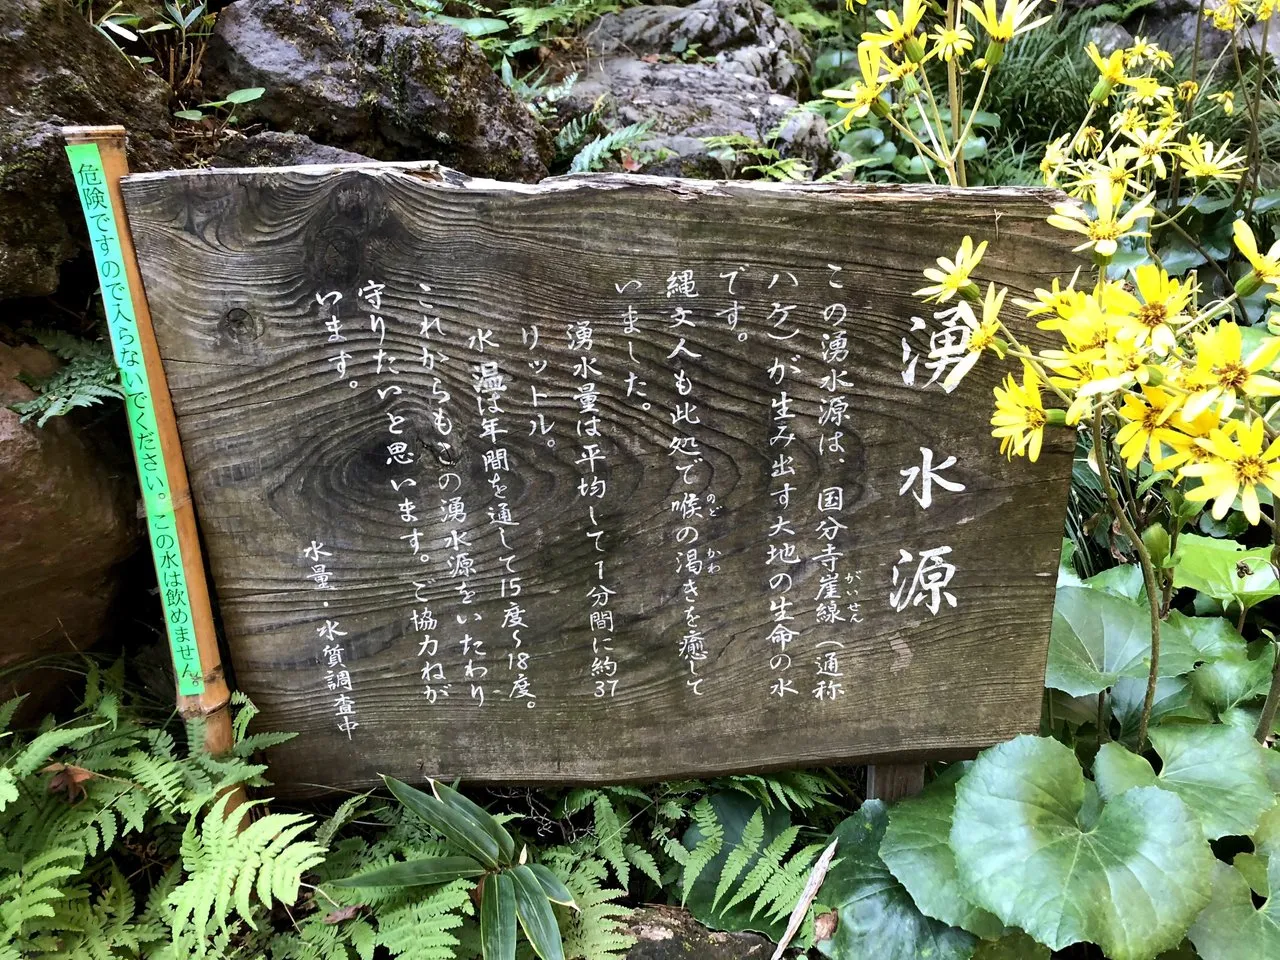 湧水源
この湧水源は、国分寺崖線（通称
がいせん
ハケ）が生み出す大地の生命の水
です。
縄文人も此処で喉の渇きを癒して
のど
かわ
いました。
湧水量は平均して1分間に約37
リットル。
水温は年間を通して15度〜18度。
これからもこの湧水源をいたわり
守りたいと思います。ご協力ねが
います。
水量・水質調査中
危険ですので入らないでください。この水は飲めません。